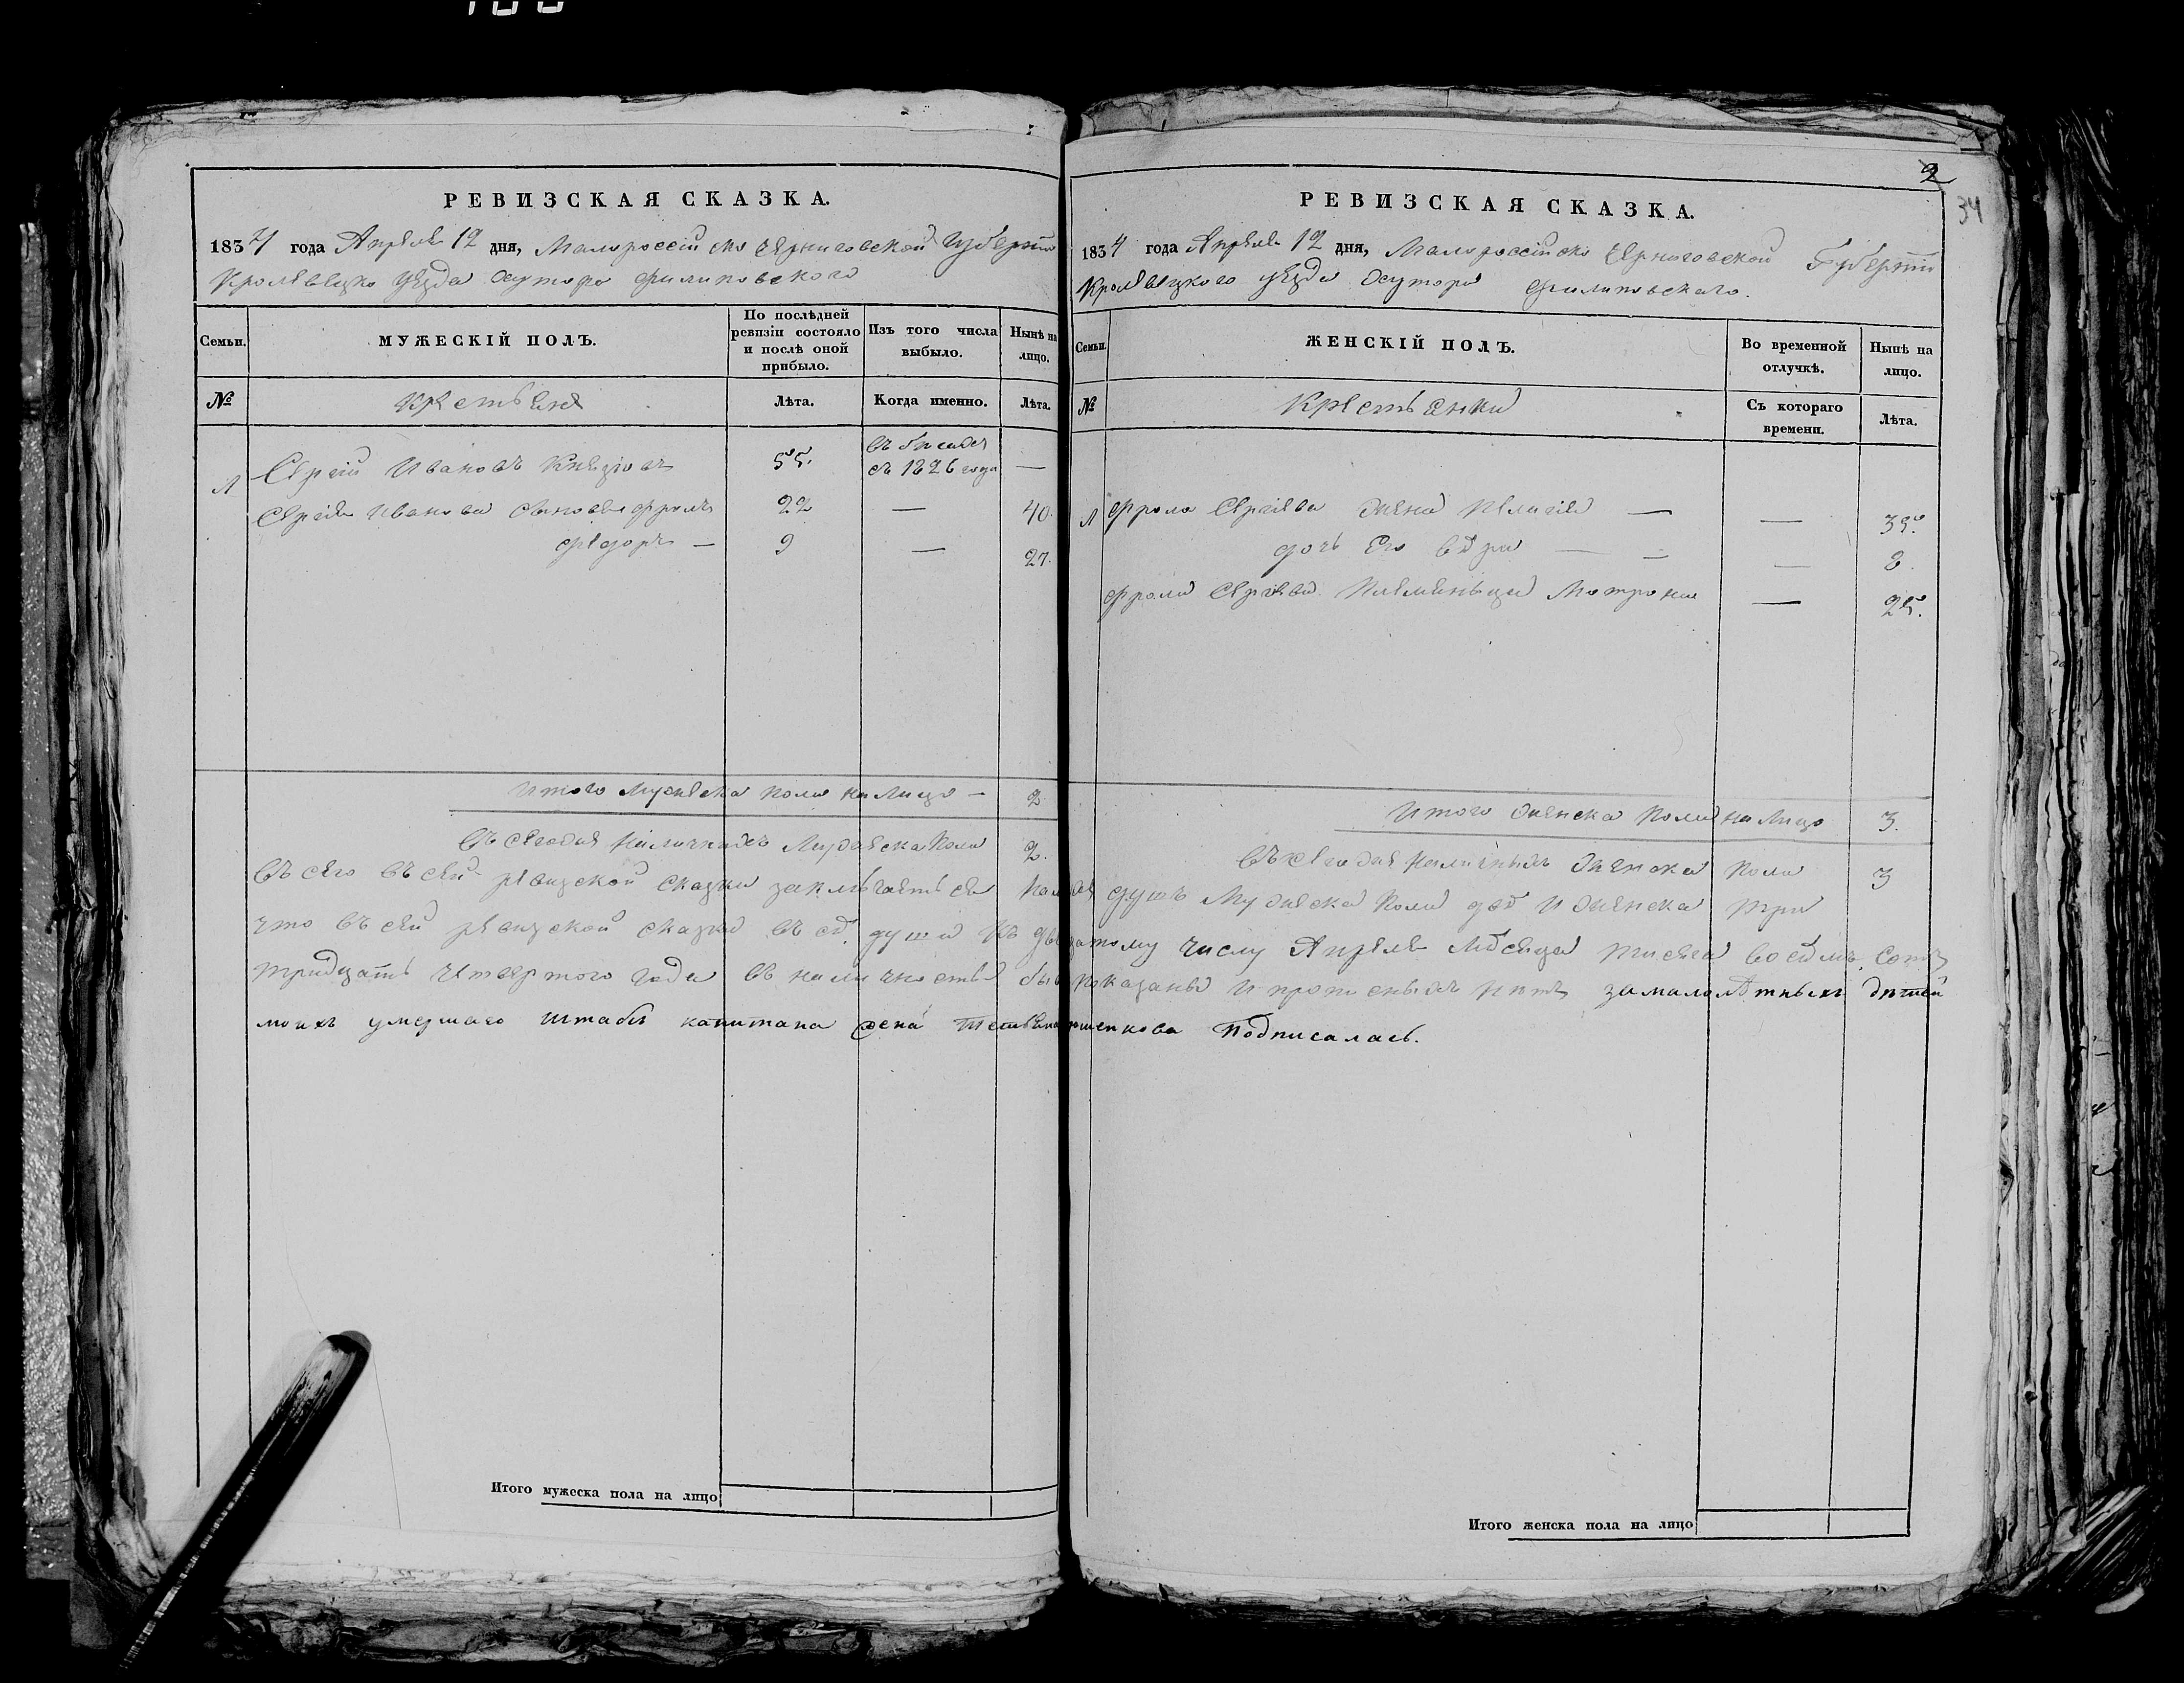 РЕВИЗСКАЯ СКАЗКА.
1834 года Апреля 12 дня, Малороссійско Черниговской Губерніи
Кролевецко уезда хутора филиповского
Семьи.
МУЖЕСКІЙ ПОЛЪ.
По послѣдней ревизіи состояло и послѣ оной прибыло.
Изъ того числа выбыло.
Нынѣ на лицо.
№
Крестьяне
Лѣта.
Когда именно.
Лѣта.
въ бегах
1 Сергій Ивановъ 55. съ 1826 года —
Сергея Иванова сыновья фролъ 22 — 40.
федоръ — 9 — 27.
Итого Мужеска пола на лицо — 2
Въсегодня наличныхъ Мужеска пола 2.
Итого мужеска пола на лицо
2
34
РЕВИЗСКАЯ СКАЗКА.
1834 года Апреля 12 дня, Малороссійско Черниговской Губерніи
Кролевецкого уезда хутора филиповскаго.
Семьи.
ЖЕНСКІЙ ПОЛЪ.
Во временной отлучкѣ.
Нынѣ на лицо.
№
Крестьянки
Съ котораго времени.
Лѣта.
1 фрола Сергіева жена Пелагея — — 35.
дочь Его — — 8.
фрола Сергеева Племеньница Мотрона — 25.
Итого женска пола на лицо 3.
Въсегодня наличныхъ женска пола 3
Въсего въ сей ревизской сказки заключаетьсе душъ Мужеска пола две и женска три
что въ сей ревизской сказки все души къ двенадцатому числу Апреля Месеца тисеча восемь сотъ
тридцать четвертого года в наличностьи показаны и прописныхъ нетъ за малолѣтныхъ дѣтей
моихъ умершаго штабъ капитана жена Подписалась.
Итого женска пола на лицо